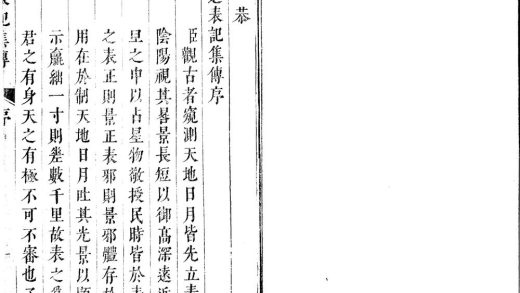 恭
表記集傳序
臣觀古者窺測天地日月皆先立表
陰陽視其晷景長短以御高深遠近
之中以占星物敬授民時皆於表
之表正則景正表邪則景邪體存於
用在於制天地日月吐其光景以
示纖細一寸則差數千里故表之
君之有身天之有極不可不審也
記集傳
序